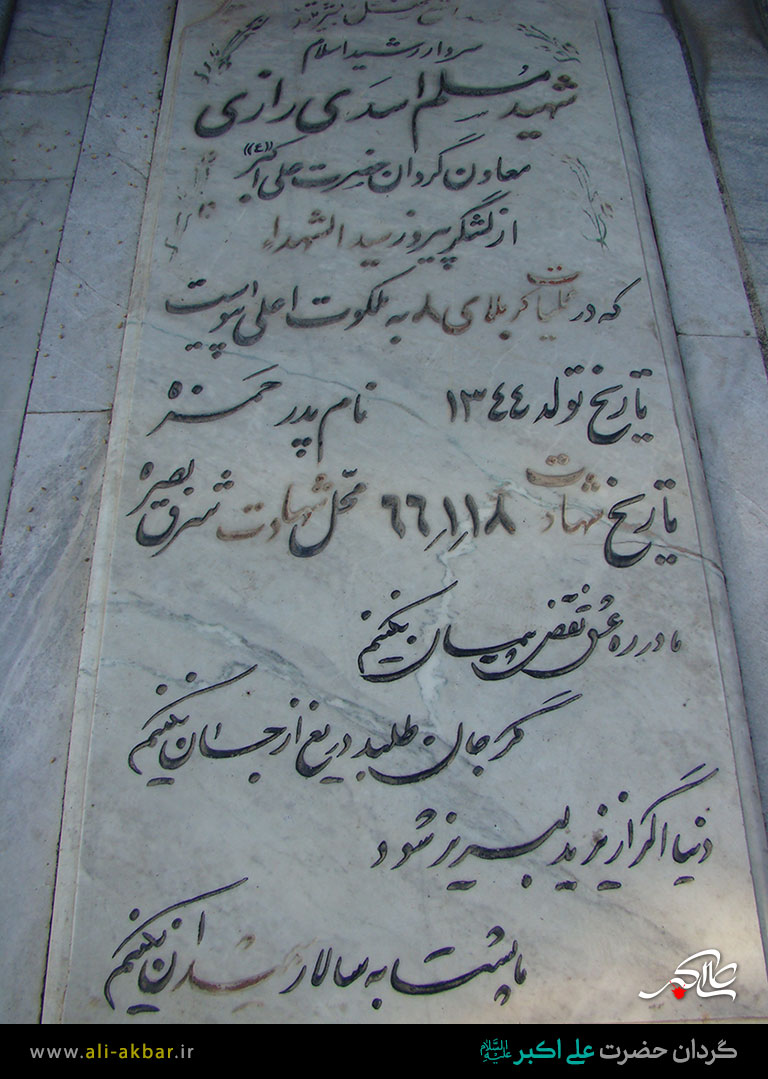 سردار رشید اسلام
شهید مسلم اسدی رازی
معاون گردان حضرت علی اکبر «ع»
از لشگر پیروز سید الشهداء
که در عملیات کربلای ۸ به ملکوت اعلی پیوست
تاریخ تولد ۱۳۴۴ نام پدر حمزه
تاریخ شهادت ۶۶٫۱٫۱۸ محل شهادت شرق بصره
ما در ره عشق نقض پیمان نکنیم
گر جان طلبد دریغ از جان نکنیم
دنیا اگر از یزید لبریز شود
ما پشت به سالار شهیدان نکنیم
علی اکبر
www.ali-akbar.ir
گردان حضرت علی اکبر علیه السلام